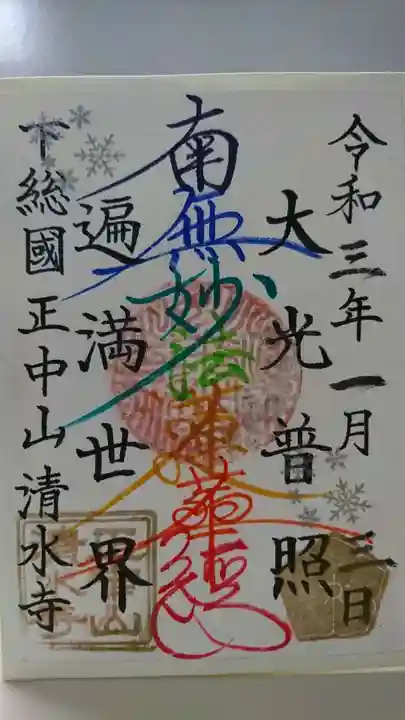 令和三年一月三日
大光普照
南無妙法蓮華経
遍満世界
下総國正中山清水寺